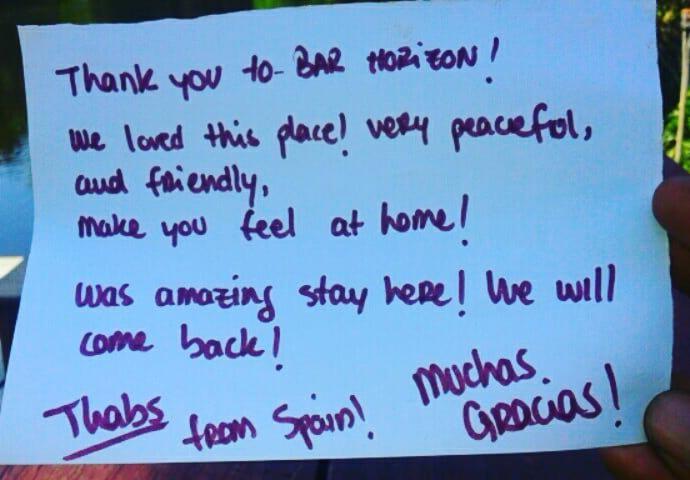 Thank you to- BAR HORIZON!
We loved this place! very peaceful,
and friendly,
make you feel at home!
was amazing stay here! We will
come back!
Thabs from Spain! Muchas
Gracias!